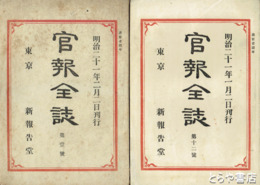 明治二十一年二月二日刊行
官報全誌
第壹號
東京
新報告堂
明治二十一年一月二日刊行
官報全誌
第十二號
東京
新報告堂
とうや書店